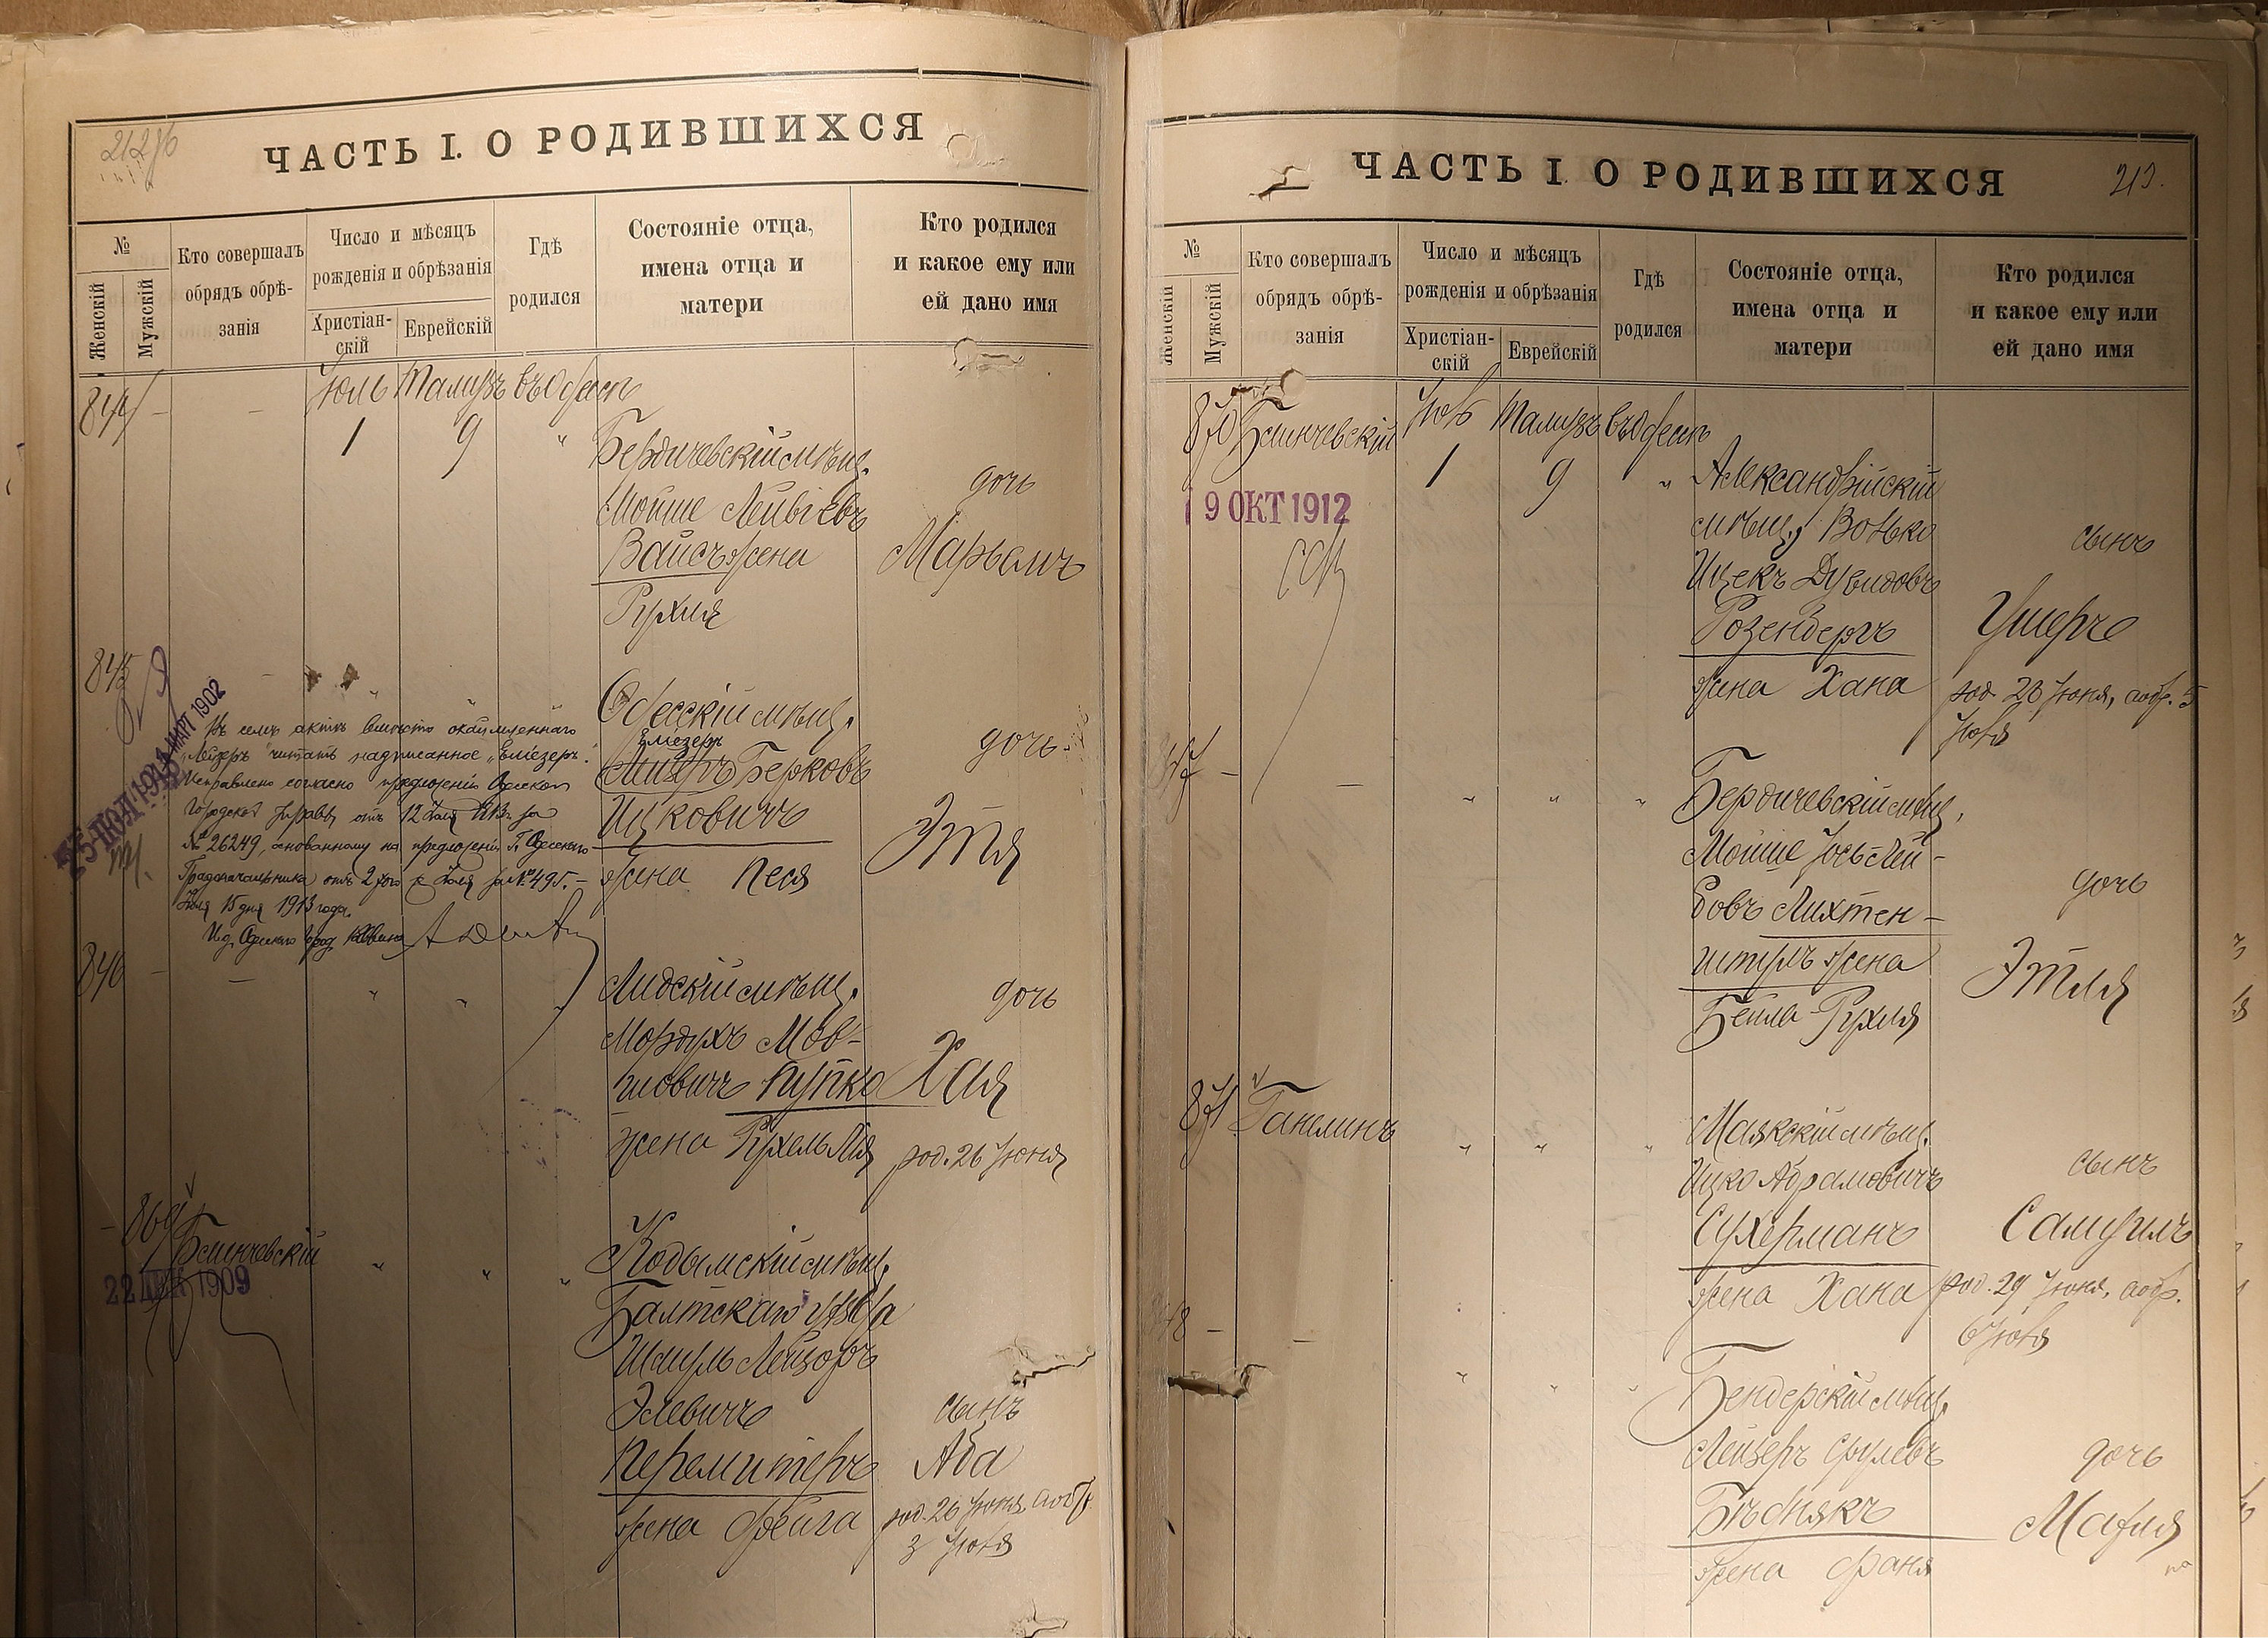 ЧАСТЬ I. О РОДИВШИХСЯ
№
Женскій
Мужскій
Кто совершалъ
обрядъ обрѣ-
занія
Число и мѣсяцъ
рожденія и обрѣзанія
Христіан-
скій
Еврейскій
Гдѣ
родился
Состояніе отца,
имена отца и
матери
Кто родился
и какое ему или
ей дано имя
844 - -
Іюль Тамузъ въ Одессѣ
1 9 "
Бердичевскій мѣщ.
Мойше Лейбіевъ
Вайсъ жена
Рухля
дочь
Марьямъ
845
25 ІЮЛ 1913
МАРТ 1902
Въ семъ актѣ вмѣсто окаймленнаго
„Лейзеръ" читать надписанное „Еліезеръ".
Исправлено согласно предложенію Одесской
Городской Управы отъ 12 Іюля 1913 г. за
№ 26249, основанному на предложеніи Г. Одесскаго
Градоначальника отъ 2 того же Іюля за № 495.-
Іюля 15 дня 1913 года.
И. д. Одесскаго Город. Раввина
Одесскій мѣщ.
Еліезеръ
Лейзеръ Берковъ
Ицковичъ
жена Песя
дочь
Этя
846 - -
" "
Лидскій мѣщ.
Мордухъ Мов-
шовичъ Пупко
жена Рухель Лія
дочь
Хая
род. 26 Іюня
- 869
Бминчевскій
22 ДЕК 1909
" " "
Кодымскій мѣщ.
Балтскаго уѣзда
Шмуль Лейзоръ
Элевичъ
Перемитеръ
жена Фейга
сынъ
Аба
род. 26 Іюня, а обр.
3 Іюля
ЧАСТЬ I. О РОДИВШИХСЯ
213.
№
Женскій
Мужскій
Кто совершалъ
обрядъ обрѣ-
занія
Число и мѣсяцъ
рожденія и обрѣзанія
Христіан-
скій
Еврейскій
Гдѣ
родился
Состояніе отца,
имена отца и
матери
Кто родился
и какое ему или
ей дано имя
870 Бминчевскій
Іюль Тамузъ въ Одессѣ
1 9 "
9 ОКТ 1912
Александрійскій
мѣщ. Волько
Ицекъ Дувидовъ
Розенбергъ
жена Хана
сынъ
Ушеръ
род. 28 Іюня, а обр. 5
Іюля
847 - -
" " "
Бердичевскій мѣщ.
Мойше Іось Лей-
бовъ Лихтен-
штулъ жена
Бейла-Рухля
дочь
Этля
871 Ганелинъ
" " "
Маякскій мѣщ.
Ицко Абрамовичъ
Сухерманъ
жена Хана
сынъ
Самуилъ
род. 29 Іюня, а обр.
6 Іюля
848 - -
" " "
Бендерскій мѣщ.
Лейзеръ Срулевъ
Бѣднякъ
жена Фаня
дочь